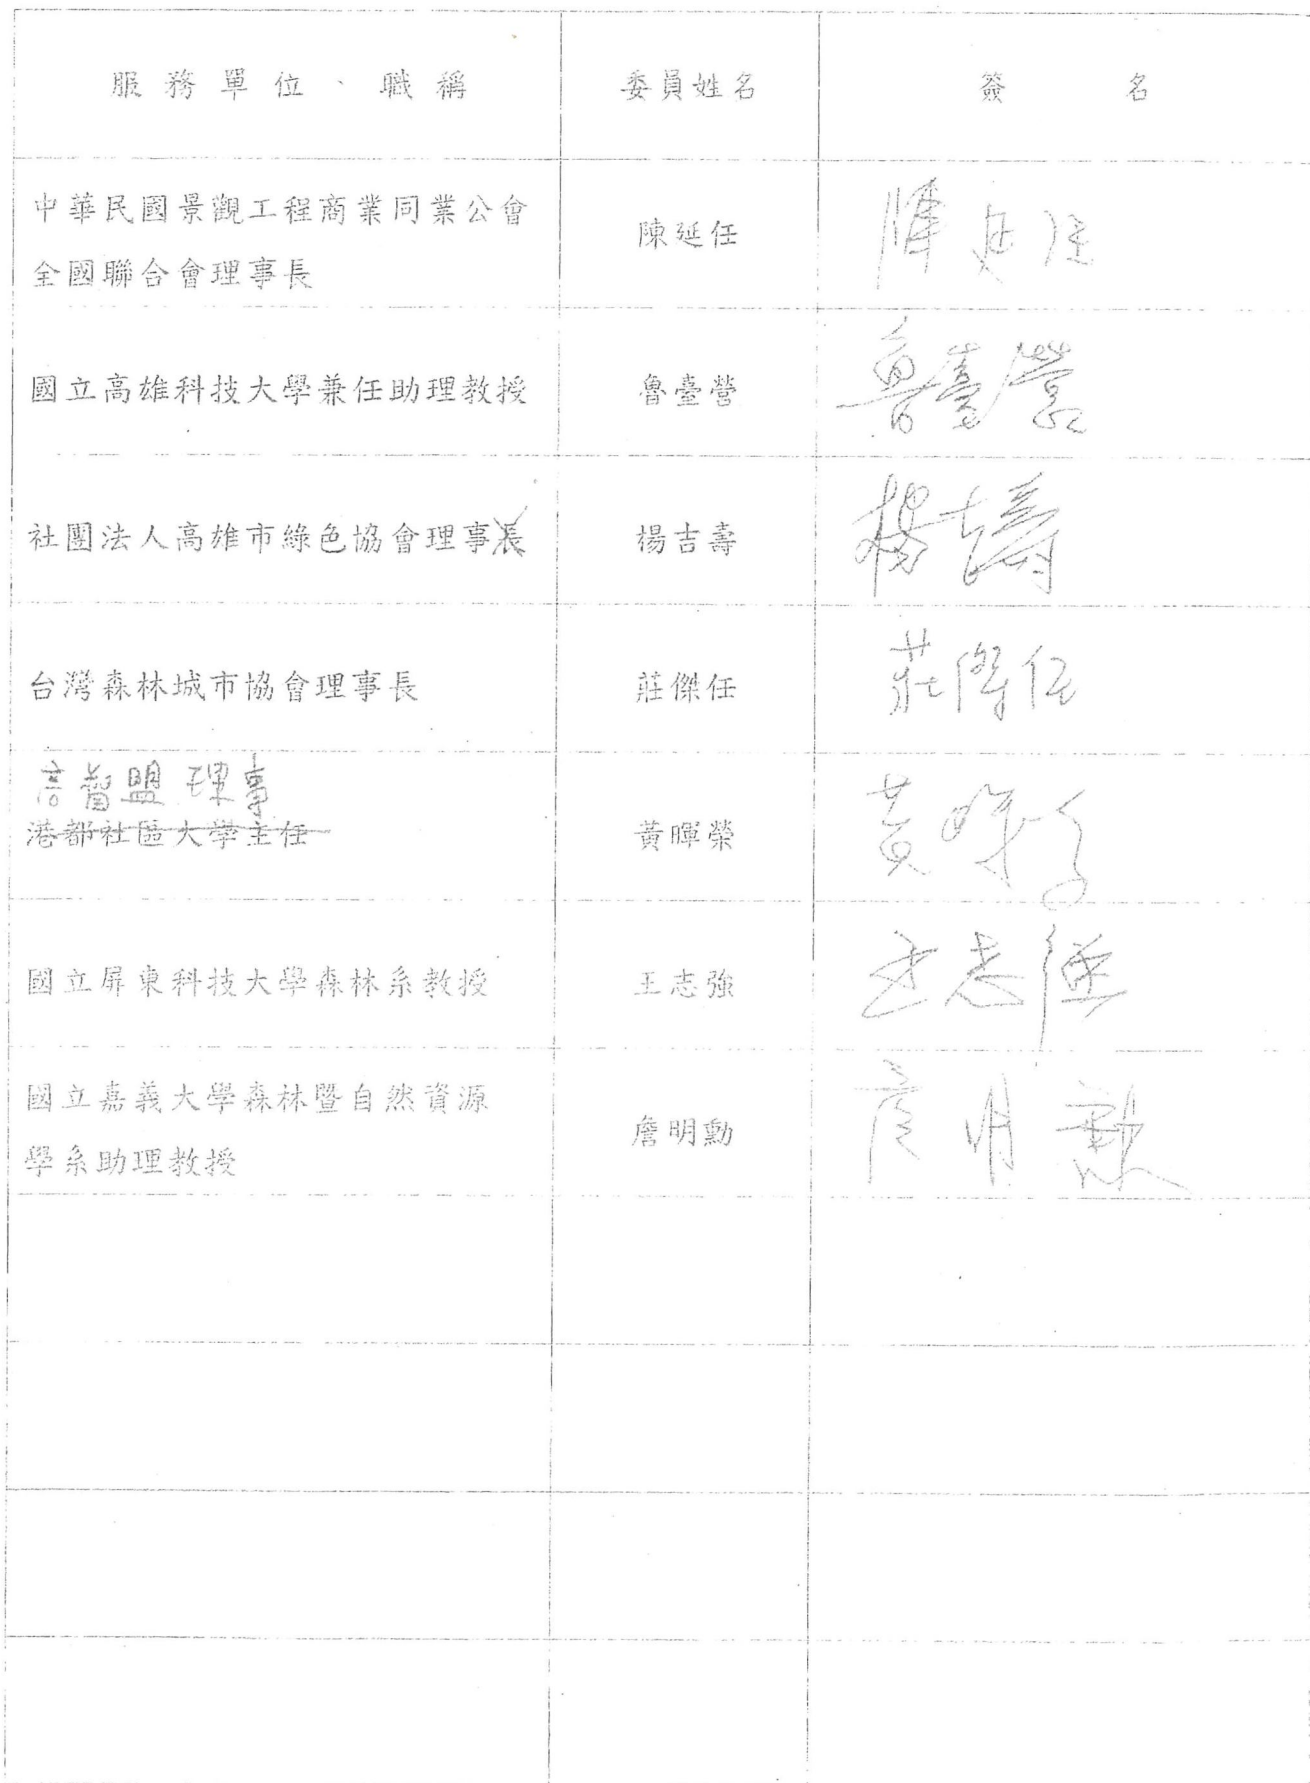 服務單位、職稱 委員姓名 簽名
中華民國景觀工程商業同業公會
全國聯合會理事長
陳延任 陳延任
國立高雄科技大學兼任助理教授 魯臺營 魯臺營
社團法人高雄市綠色協會理事長 楊吉壽 楊吉壽
台灣森林城市協會理事長 莊傑任 莊傑任
高智盟 理事
港都社區大學主任
黃暉榮 黃暉榮
國立屏東科技大學森林系教授 王志強 王志強
國立嘉義大學森林暨自然資源
學系助理教授
詹明勳 詹明勳